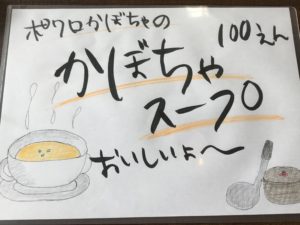 ポワロかぼちゃの
100えん
かぼちゃ
スープ
おいしいよ〜